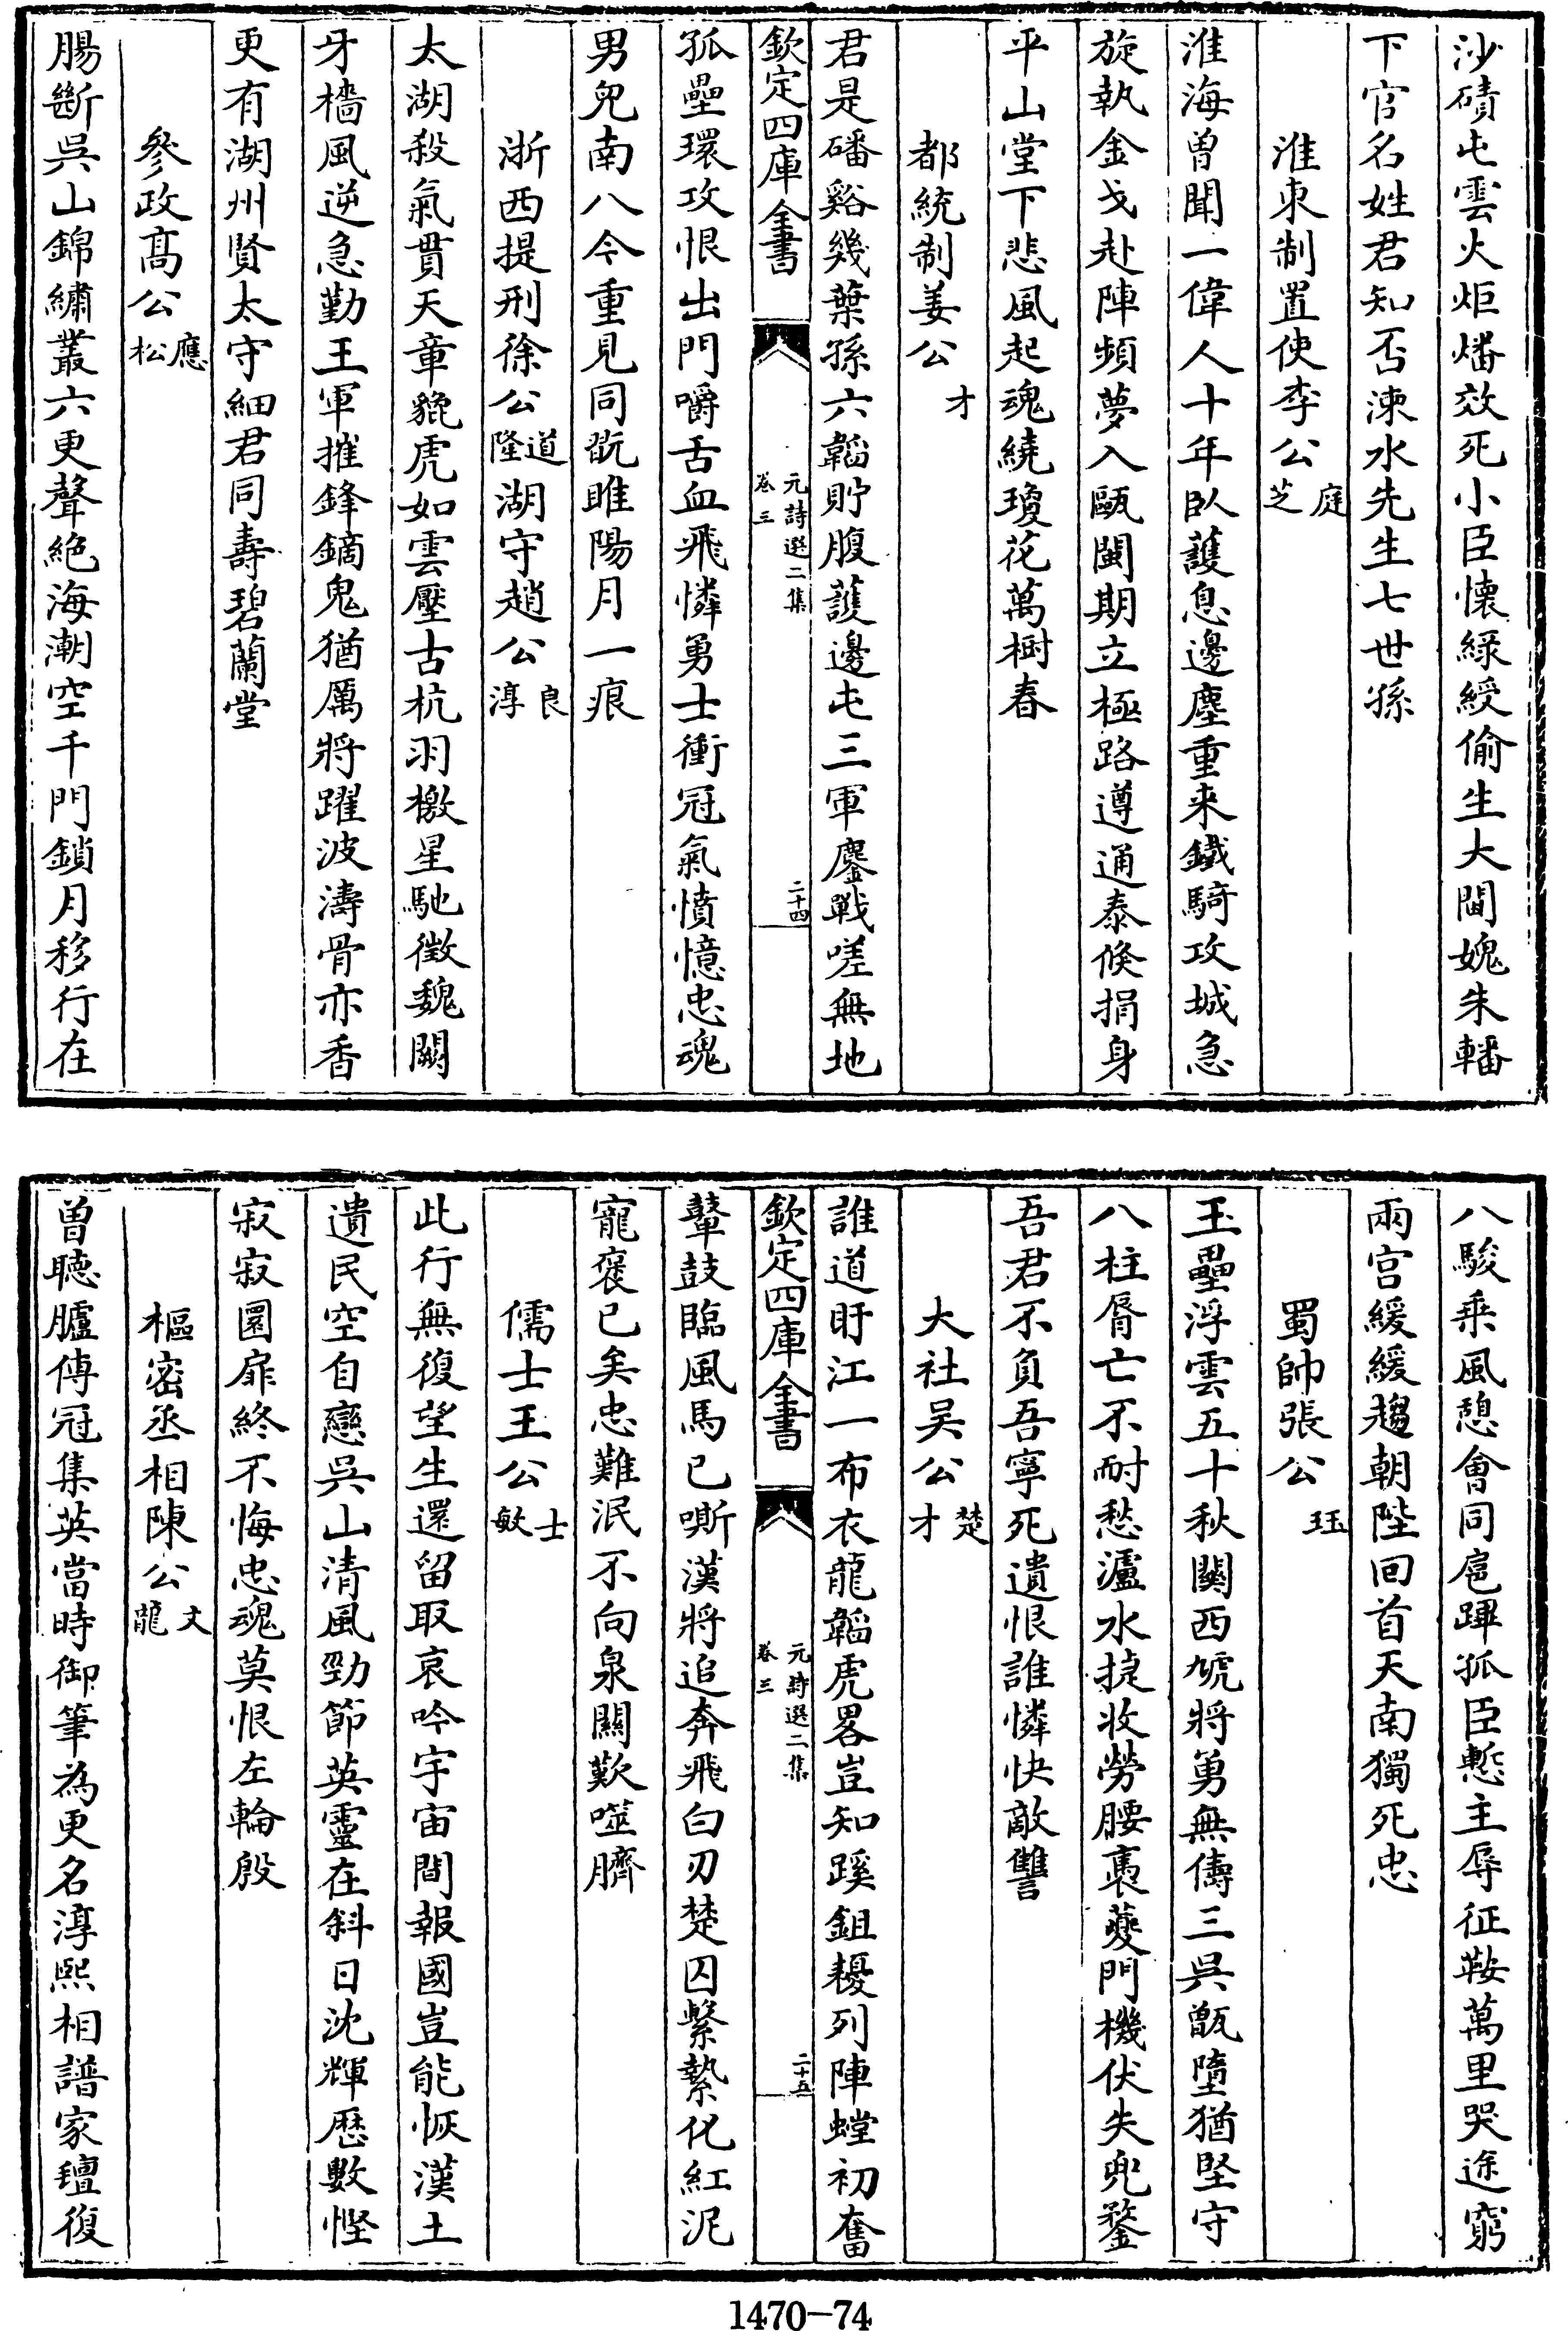 沙磧屯雲火炬燔效死小臣懷緑綬偷生大閫媿朱轓
下官名姓君知否涑水先生七世孫
淮東制置使李公庭芝
淮海曽聞一偉人十年臥護息邊塵重来鐵騎攻城急
旋執金戈赴陣頻夢入甌閩期立極路遵通泰倐捐身
平山堂下悲風起魂繞瓊花萬樹春
都統制姜公才
君是磻谿幾葉孫六韜貯腹護邊屯三軍鏖戰嗟無地
欽定四庫全書
元詩選二集
卷三
二十四
孤壘環攻恨出門嚼舌血飛憐勇士衝冠氣憤憶忠魂
男兒南八今重見同翫睢陽月一痕
浙西提刑徐公道隆湖守趙公良淳
太湖殺氣貫天章貔虎如雲壓古杭羽檄星馳徴魏闕
牙檣風逆急勤王軍摧鋒鏑鬼猶厲將躍波濤骨亦香
更有湖州賢太守細君同壽碧蘭堂
參政髙公應松
腸斷吳山錦繡叢六更聲絶海潮空千門鎖月移行在
八駿乗風憩會同扈蹕孤臣慙主辱征鞍萬里哭途窮
兩宫緩緩趨朝陛回首天南獨死忠
蜀帥張公珏
玉壘浮雲五十秋關西虓將勇無儔三吳甑墮猶堅守
八柱脣亡不耐愁瀘水捷收勞腰褭夔門機伏失兜鍪
吾君不負吾寧死遺恨誰憐快敵讐
大社吴公楚才
誰道盱江一布衣龍韜虎畧豈知蹊鉏耰列陣螳初奮
欽定四庫全書
元詩選二集
卷三
二十五
鼙鼓臨風馬已嘶漢將追奔飛白刃楚囚繫縶化紅泥
寵襃已矣忠難泯不向泉關歎噬臍
儒士王公士敏
此行無復望生還留取哀吟宇宙間報國豈能恢漢土
遺民空自戀吳山清風勁節英靈在斜日沈輝厯數慳
寂寂圜扉終不悔忠魂莫恨左輪殷
樞密丞相陳公文龍
曽聽臚傳冠集英當時御筆為更名淳熙相譜家氊復
1470-74